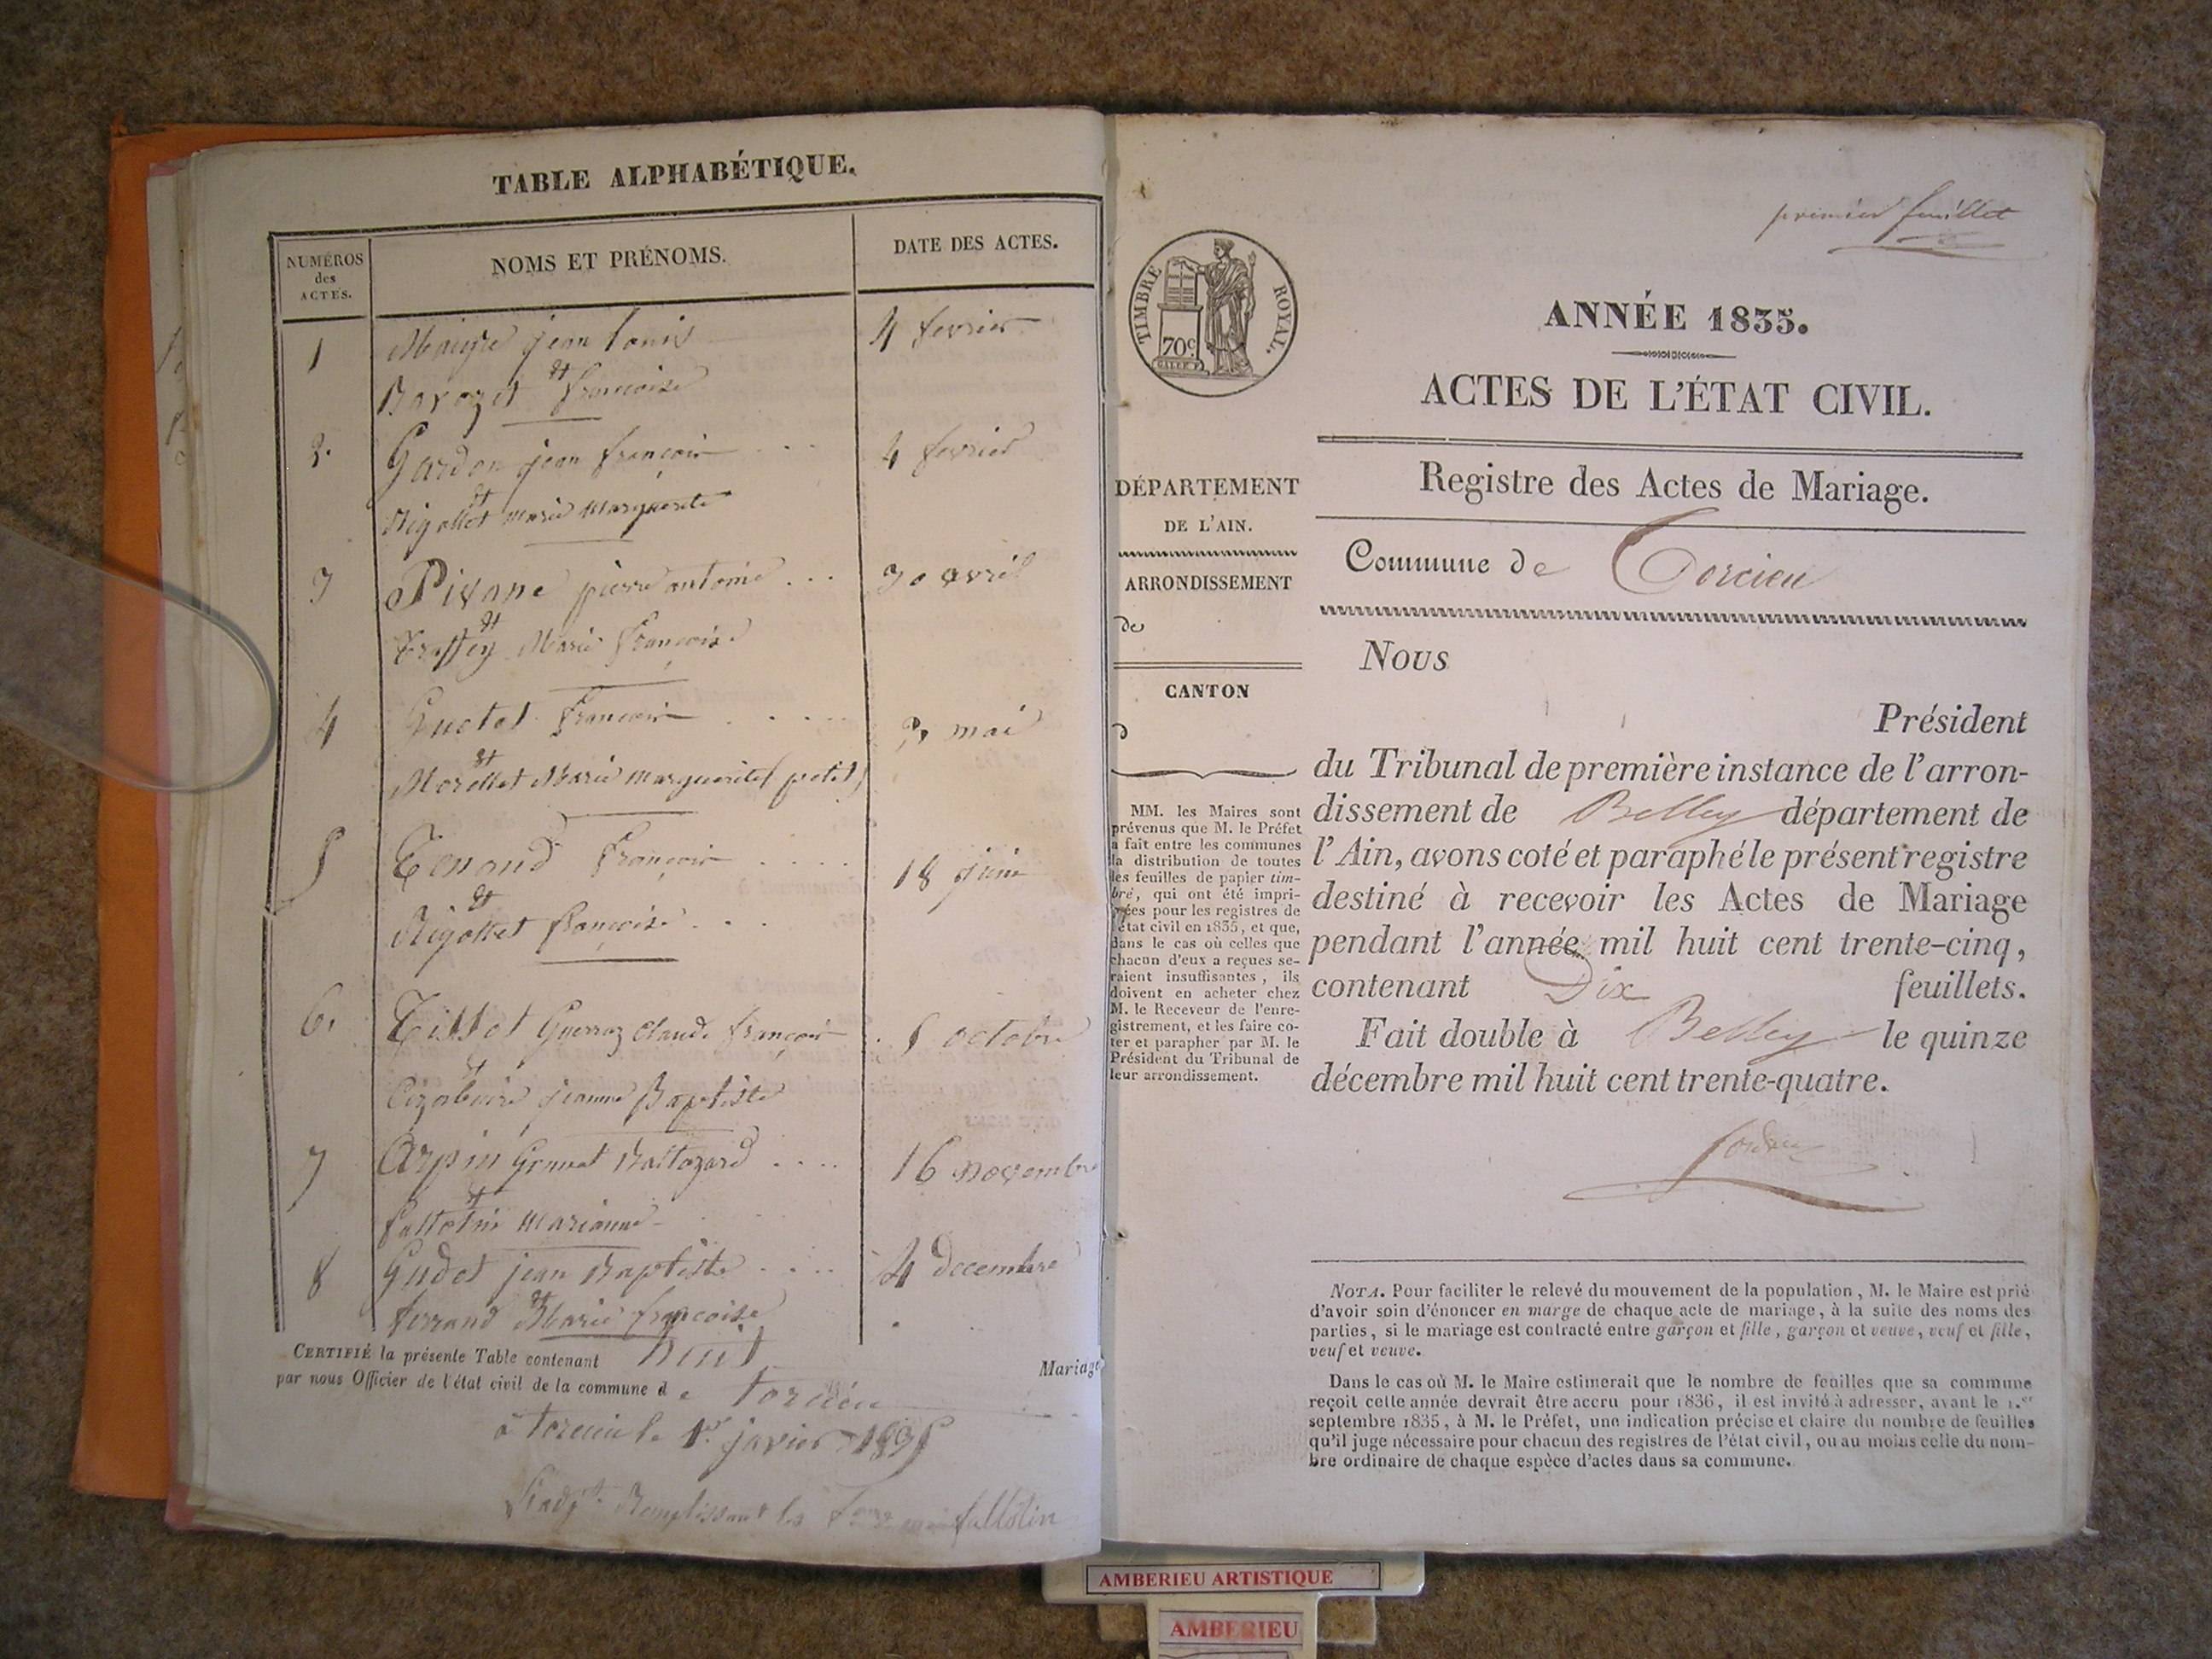 TABLE ALPHABÉTIQUE.
NUMÉROS
des
ACTES.
NOMS ET PRÉNOMS.
DATE DES ACTES.
1 jean Louis 4 fevrier
et
françoise
2. Gardon jean françois 4 fevrier
et
Rigollet marie Marguerite
3 Pivane pierre antoine ... 30 avril
et
Marie françoise
4 françois mai
et
Morellet Marie Marguerite (petit)
5 Tenand françois .... 18 juin
et
Rigollet françoise ...
6. Tissot Guerraz Claude françois octobre
et
jeanne Baptiste
7 Arpin Baltazard .... 16 novembre
et
fallotin Marianne
8 Gudet jean Baptiste .... 4 decembre
et
ferrand Marie françoise
CERTIFIÉ la présente Table contenant huit Mariage
par nous Officier de l'état civil de la commune de Torcieu
à Torcieu le 1er janvier
Remplissant les fallotin
premier feuillet
TIMBRE ROYAL.
70c
ANNÉE 1835.
ACTES DE L'ÉTAT CIVIL.
Registre des Actes de Mariage.
Commune de Torcieu
DÉPARTEMENT
DE L'AIN.
ARRONDISSEMENT
de
CANTON
d
MM. les Maires sont
prévenus que M. le Préfet
a fait entre les communes
la distribution de toutes
les feuilles de papier tim-
bré, qui ont été impri-
mées pour les registres de
l'état civil en 1835, et que,
dans le cas où celles que
chacun d'eux a reçues se-
raient insuffisantes, ils
doivent en acheter chez
M. le Receveur de l'enre-
gistrement, et les faire co-
ter et parapher par M. le
Président du Tribunal de
leur arrondissement.
Nous
Président
du Tribunal de première instance de l'arron-
dissement de Belley département de
l'Ain, avons coté et paraphé le présent registre
destiné à recevoir les Actes de Mariage
pendant l'année mil huit cent trente-cinq,
contenant Dix feuillets.
Fait double à Belley le quinze
décembre mil huit cent trente-quatre.
NOTA. Pour faciliter le relevé du mouvement de la population, M. le Maire est prié
d'avoir soin d'énoncer en marge de chaque acte de mariage, à la suite des noms des
parties, si le mariage est contracté entre garçon et fille, garçon et veuve, veuf et fille,
veuf et veuve.
Dans le cas où M. le Maire estimerait que le nombre de feuilles que sa commune
reçoit cette année devrait être accru pour 1836, il est invité à adresser, avant le 1.er
septembre 1835, à M. le Préfet, une indication précise et claire du nombre de feuilles
qu'il juge nécessaire pour chacun des registres de l'état civil, ou au moins celle du nom-
bre ordinaire de chaque espèce d'actes dans sa commune.
AMBERIEU ARTISTIQUE
AMBERIEU